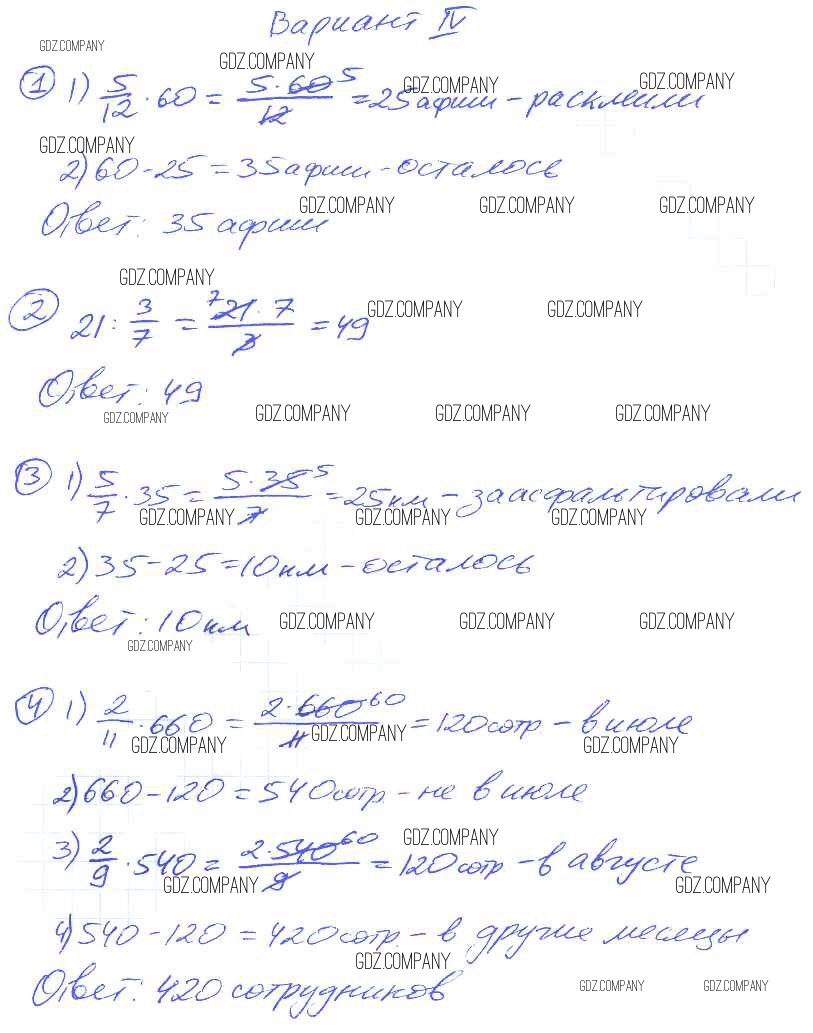 Вариант IV
GDZ.COMPANY
GDZ.COMPANY
① 1) 5/12 · 60 = 5·60 5/12 = 25 афиш - расклеили
GDZ.COMPANY GDZ.COMPANY
GDZ.COMPANY
2) 60 - 25 = 35 афиш - осталось
GDZ.COMPANY GDZ.COMPANY GDZ.COMPANY
Ответ: 35 афиш
GDZ.COMPANY
② 21 : 3/7 = 7 21·7/3 = 49
GDZ.COMPANY GDZ.COMPANY
Ответ: 49
GDZ.COMPANY GDZ.COMPANY GDZ.COMPANY GDZ.COMPANY
③ 1) 5/7 · 35 = 5·35 5/7 = 25 км - заасфальтировали
GDZ.COMPANY GDZ.COMPANY GDZ.COMPANY
2) 35 - 25 = 10 км - осталось
Ответ: 10 км
GDZ.COMPANY GDZ.COMPANY GDZ.COMPANY
GDZ.COMPANY
④ 1) 2/11 · 660 = 2·660 60/11 = 120 сотр - в июле
GDZ.COMPANY GDZ.COMPANY GDZ.COMPANY
2) 660 - 120 = 540 сотр. - не в июле
3) 2/9 · 540 = 2·540 60/9 = 120 сотр - в августе
GDZ.COMPANY
GDZ.COMPANY GDZ.COMPANY
4) 540 - 120 = 420 сотр. - в другие месяцы
GDZ.COMPANY
Ответ: 420 сотрудников
GDZ.COMPANY GDZ.COMPANY